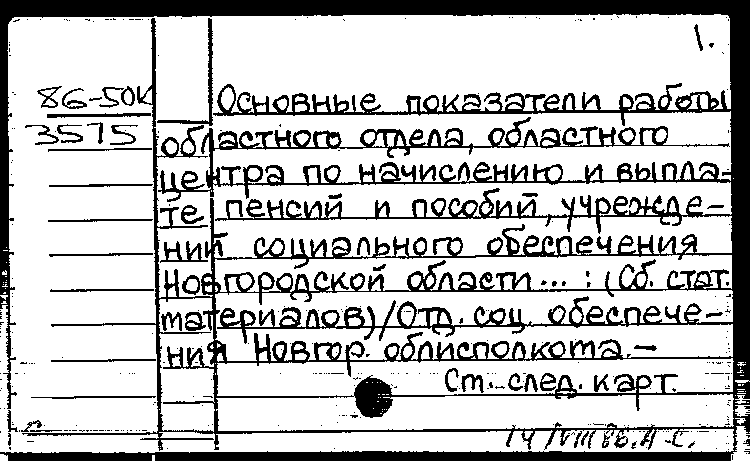 1.
86-50К
3575
Основные показатели работы
областного отдела, областного
центра по начислению и выпла-
те пенсий и пособий, учрежде-
ний социального обеспечения
Новгородской области... : (Сб. стат.
материалов)/Отд. соц. обеспече-
ния Новгор. облисполкома.—
См. след. карт.
14/VIII 86. А-С.